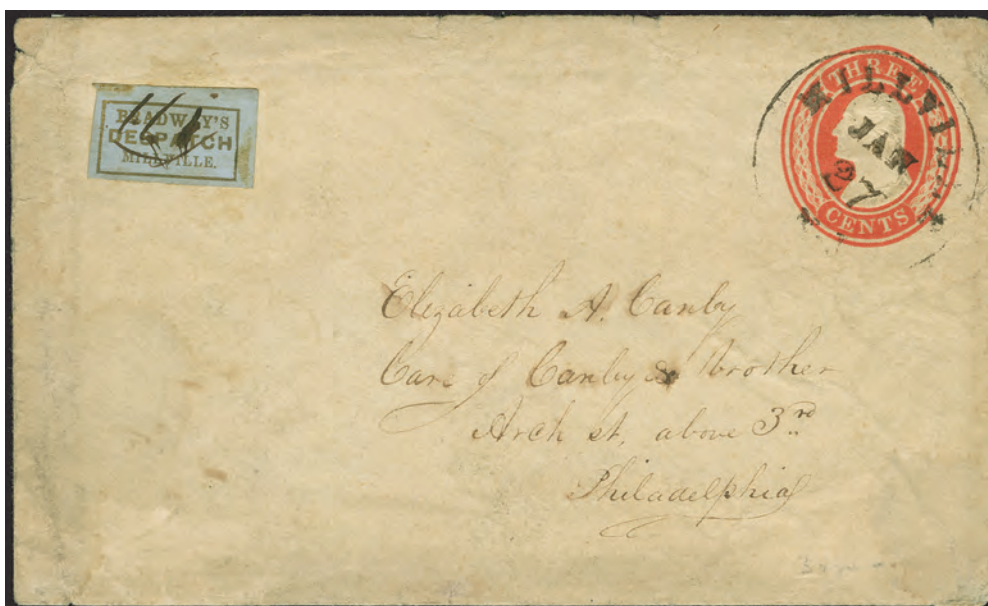 BRADWAY'S
DESPATCH
MILLVILLE.
THREE
CENTS
MILLVIL
JAN
Elizabeth A. Canby
Care of Canby & Brother
Arch st, above 3rd
Philadelphia